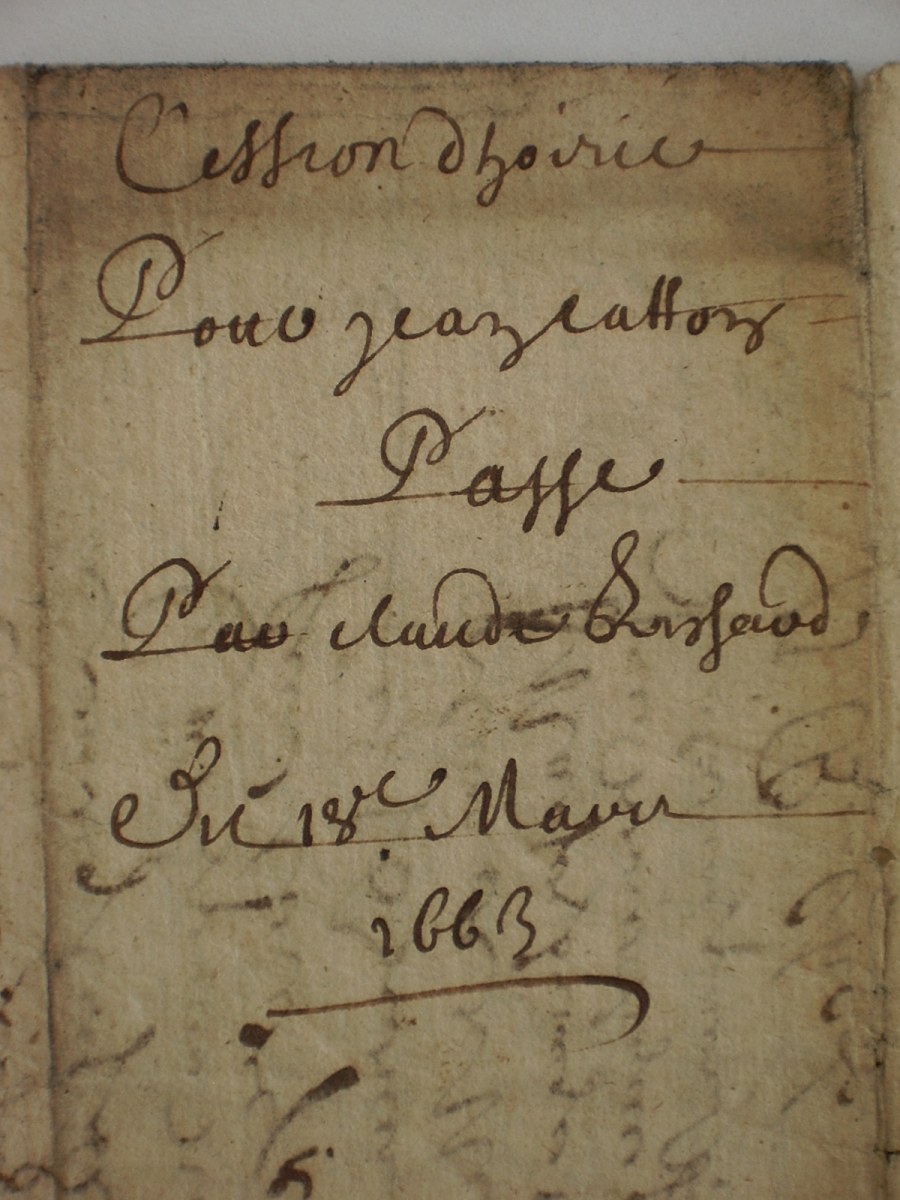 Cession dhoirie
Pour jean catton
Passe
Par claude
Du 18e Mars
1663